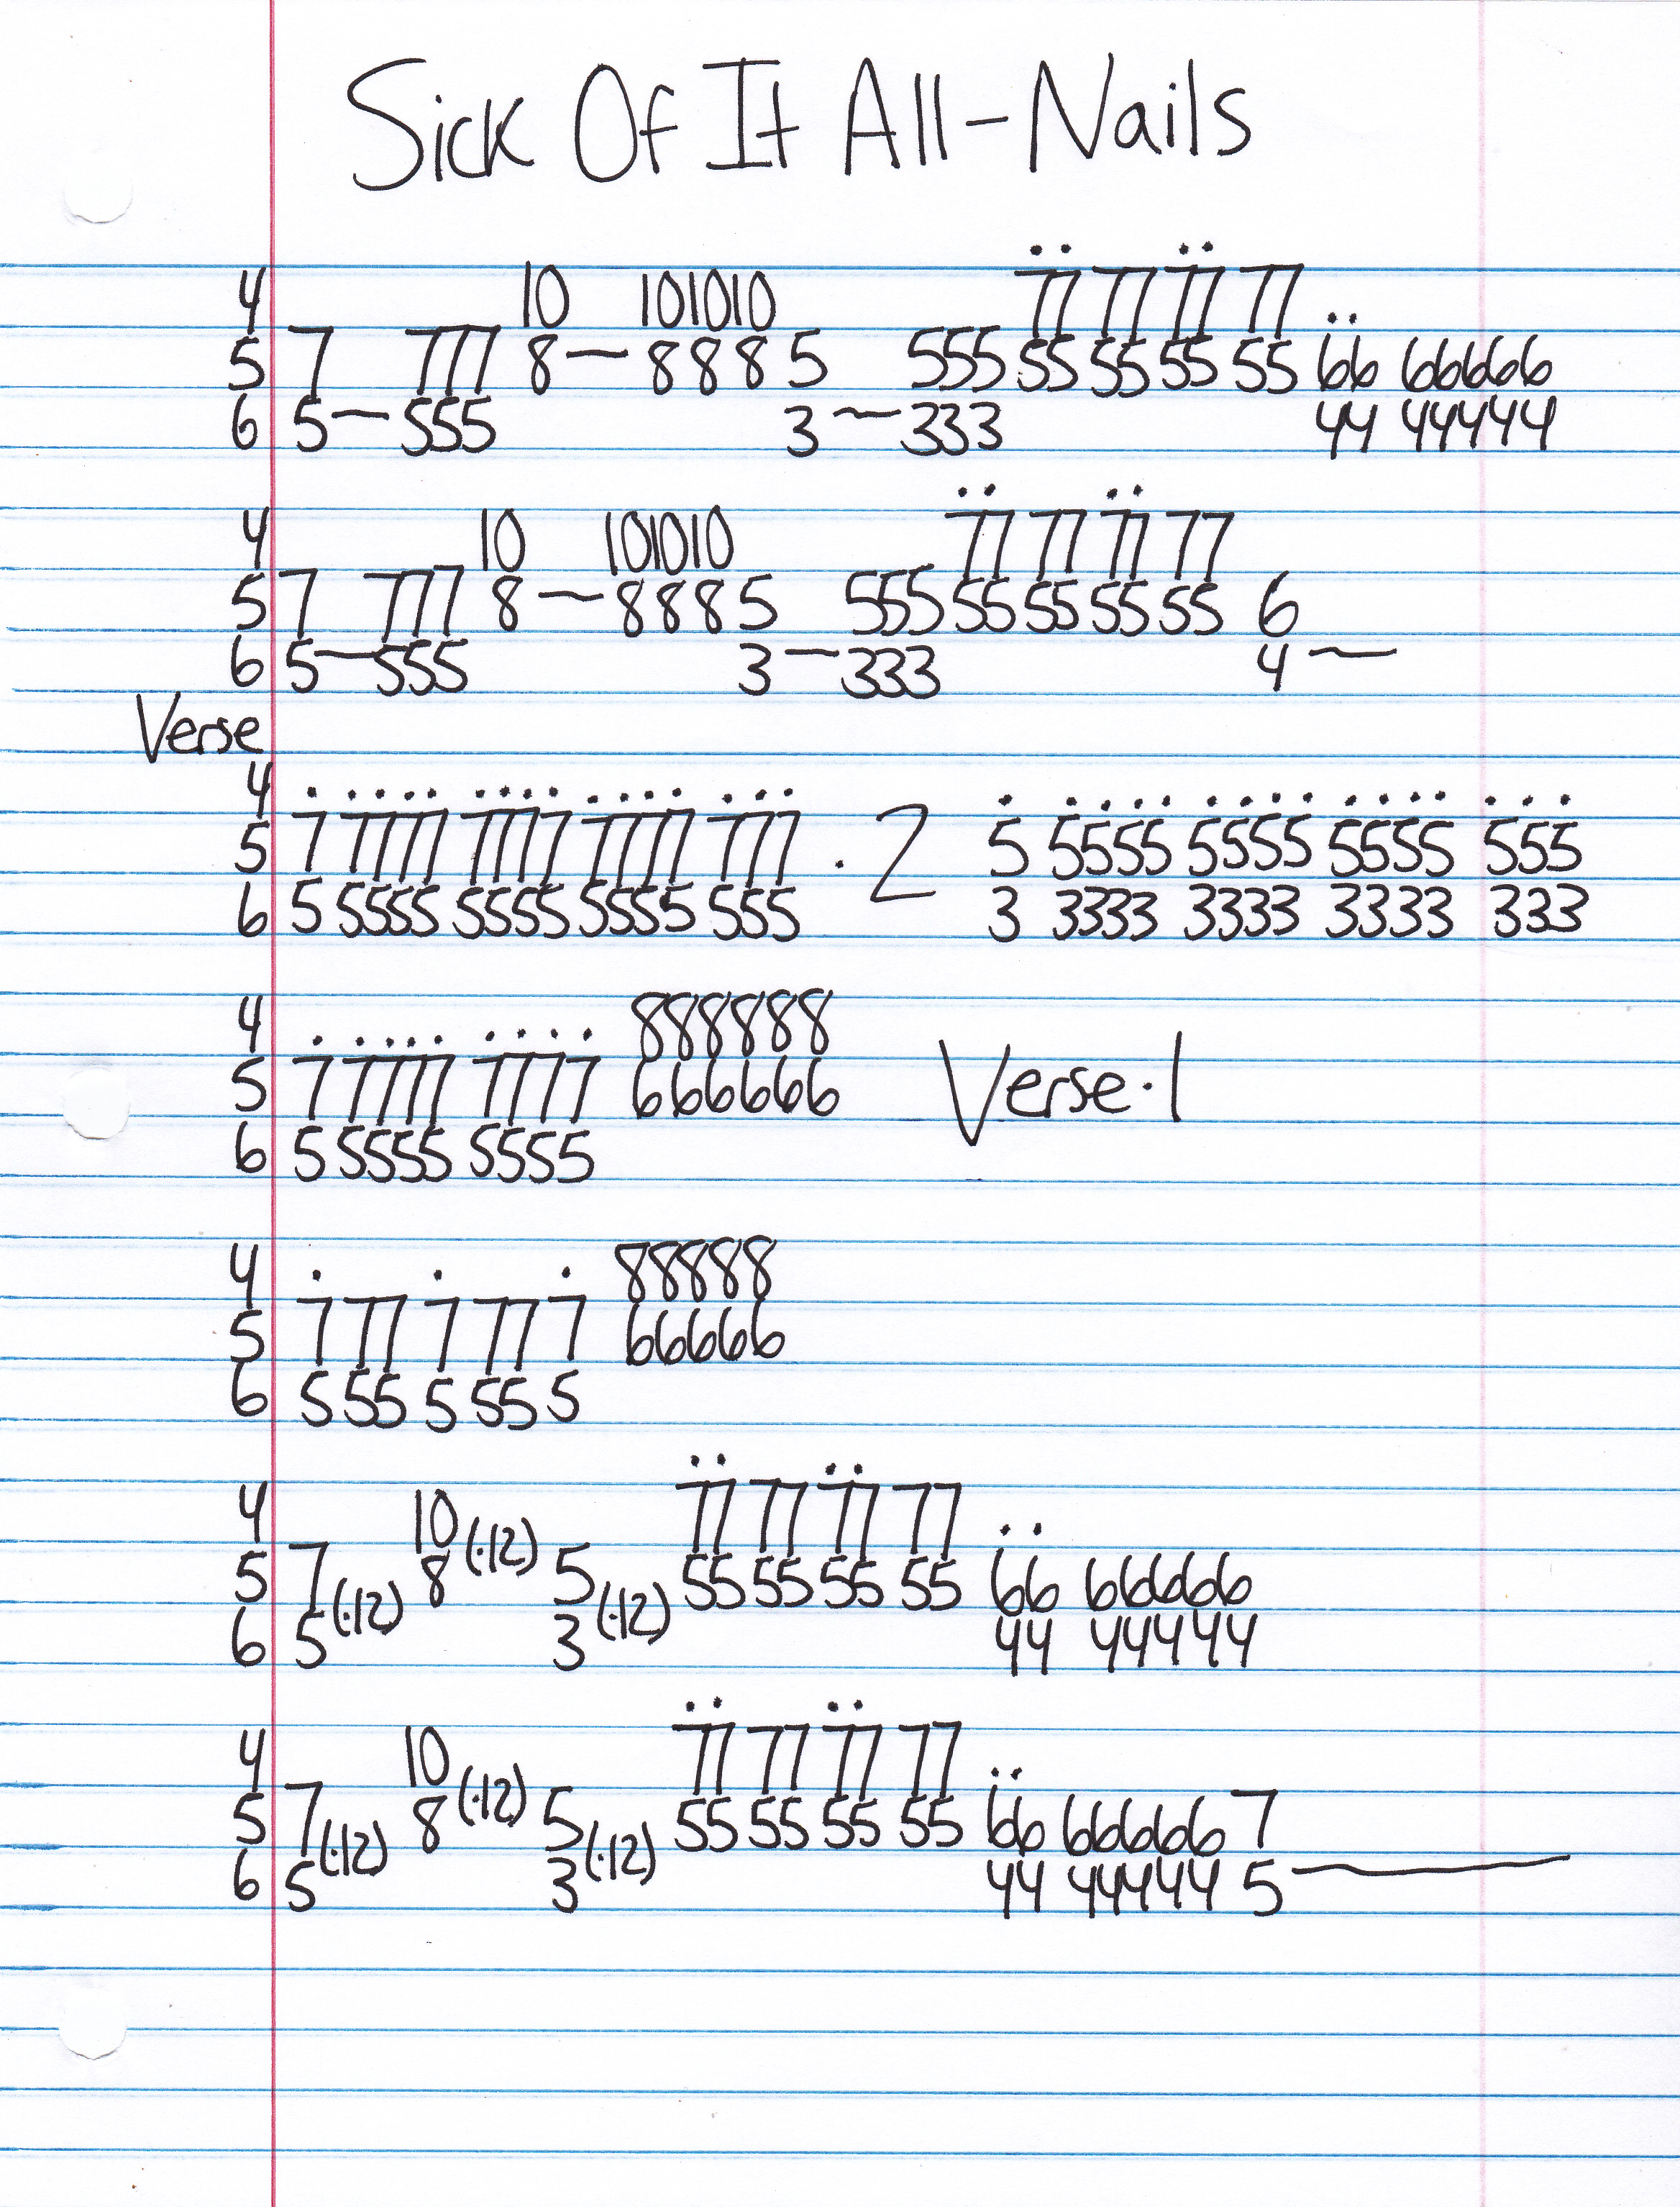 Sick Of It All-Nails
4 10 101010 7̈7̈ 77 7̈7̈ 77
5 7 777 8— 8 8 8 5 555 55 55 55 55 6̈6̈ 66666
6 5— 555 3 — 333 44 44444
4 10 101010 7̈7̈ 77 7̈7̈ 77
5 7 777 8— 8 8 8 5 555 55 55 55 55 6
6 5—555 3 — 333 4 —
Verse
4 . .... .... .... ... . .... .... .... ...
5 7 7777 7777 7777 777 · 2 5 5555 5555 5555 555
6 5 5555 5555 5555 555 3 3333 3333 3333 333
4 . .... .... 888888
5 7 7777 7777 666666 Verse·1
6 5 5555 5555
4 . . . 88888
5 7 77 7 77 7 66666
6 5 55 5 55 5
4 10 (·12) 7̈7̈ 77 7̈7̈ 77
5 7 (·12) 8 5 (·12) 55 55 55 55 6̈6̈ 66666
6 5 3 44 44444
4 10 (·12) 7̈7̈ 77 7̈7̈ 77
5 7 (·12) 8 5 (·12) 55 55 55 55 6̈6̈ 66666 7
6 5 3 44 44444 5 —